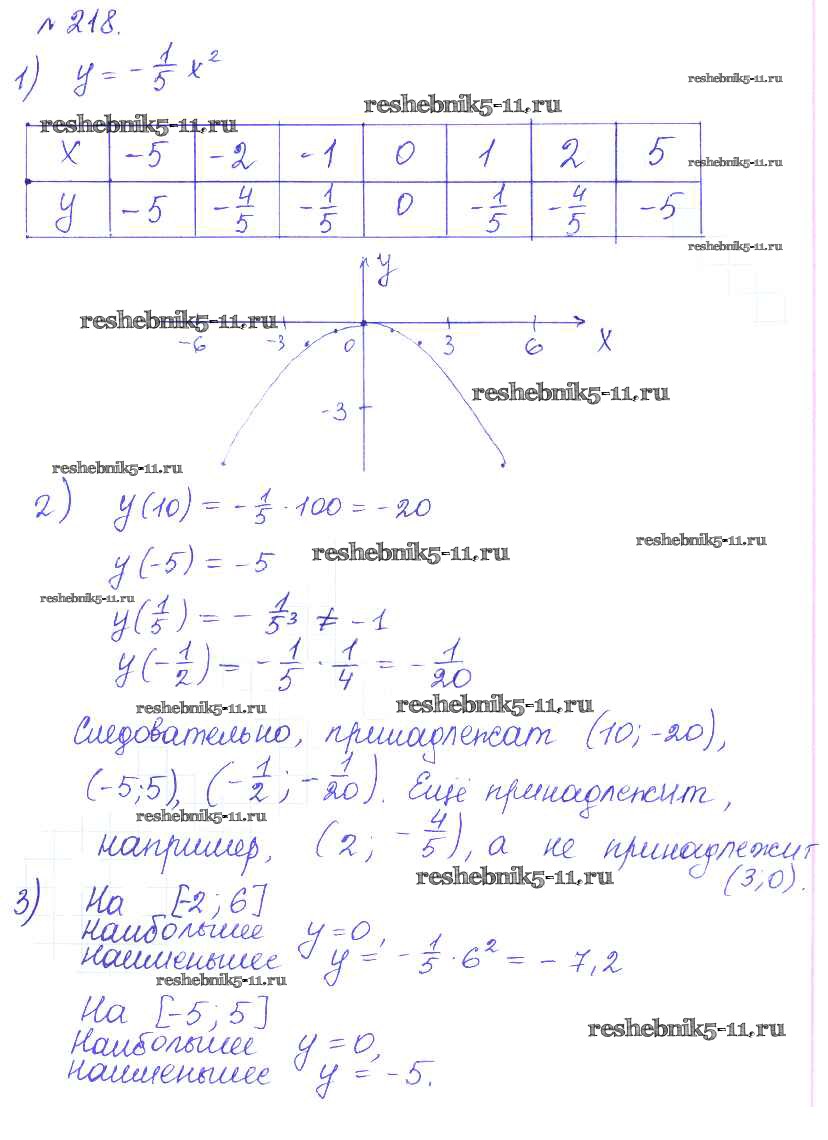 № 218.
1) y = -1/5 x²
reshebnik5-11.ru
reshebnik5-11.ru
reshebnik5-11.ru
x -5 -2 -1 0 1 2 5
reshebnik5-11.ru
y -5 -4/5 -1/5 0 -1/5 -4/5 -5
reshebnik5-11.ru
y
reshebnik5-11.ru
-6 -3 0 3 6 x
reshebnik5-11.ru
-3
reshebnik5-11.ru
2) y(10) = -1/5 · 100 = -20
reshebnik5-11.ru
y(-5) = -5
reshebnik5-11.ru
reshebnik5-11.ru
y(1/5) = -1/5³ ≠ -1
y(-1/2) = -1/5 · 1/4 = -1/20
reshebnik5-11.ru
reshebnik5-11.ru
Следовательно, принадлежат (10; -20),
(-5;5), (-1/2; -1/20). Ещё принадлежит,
reshebnik5-11.ru
например, (2; -4/5), а не принадлежит
(3;0).
reshebnik5-11.ru
3) На [-2; 6]
наибольшее y=0,
наименьшее y = -1/5 · 6² = -7,2
reshebnik5-11.ru
На [-5; 5]
reshebnik5-11.ru
Наибольшее y = 0,
наименьшее y = -5.